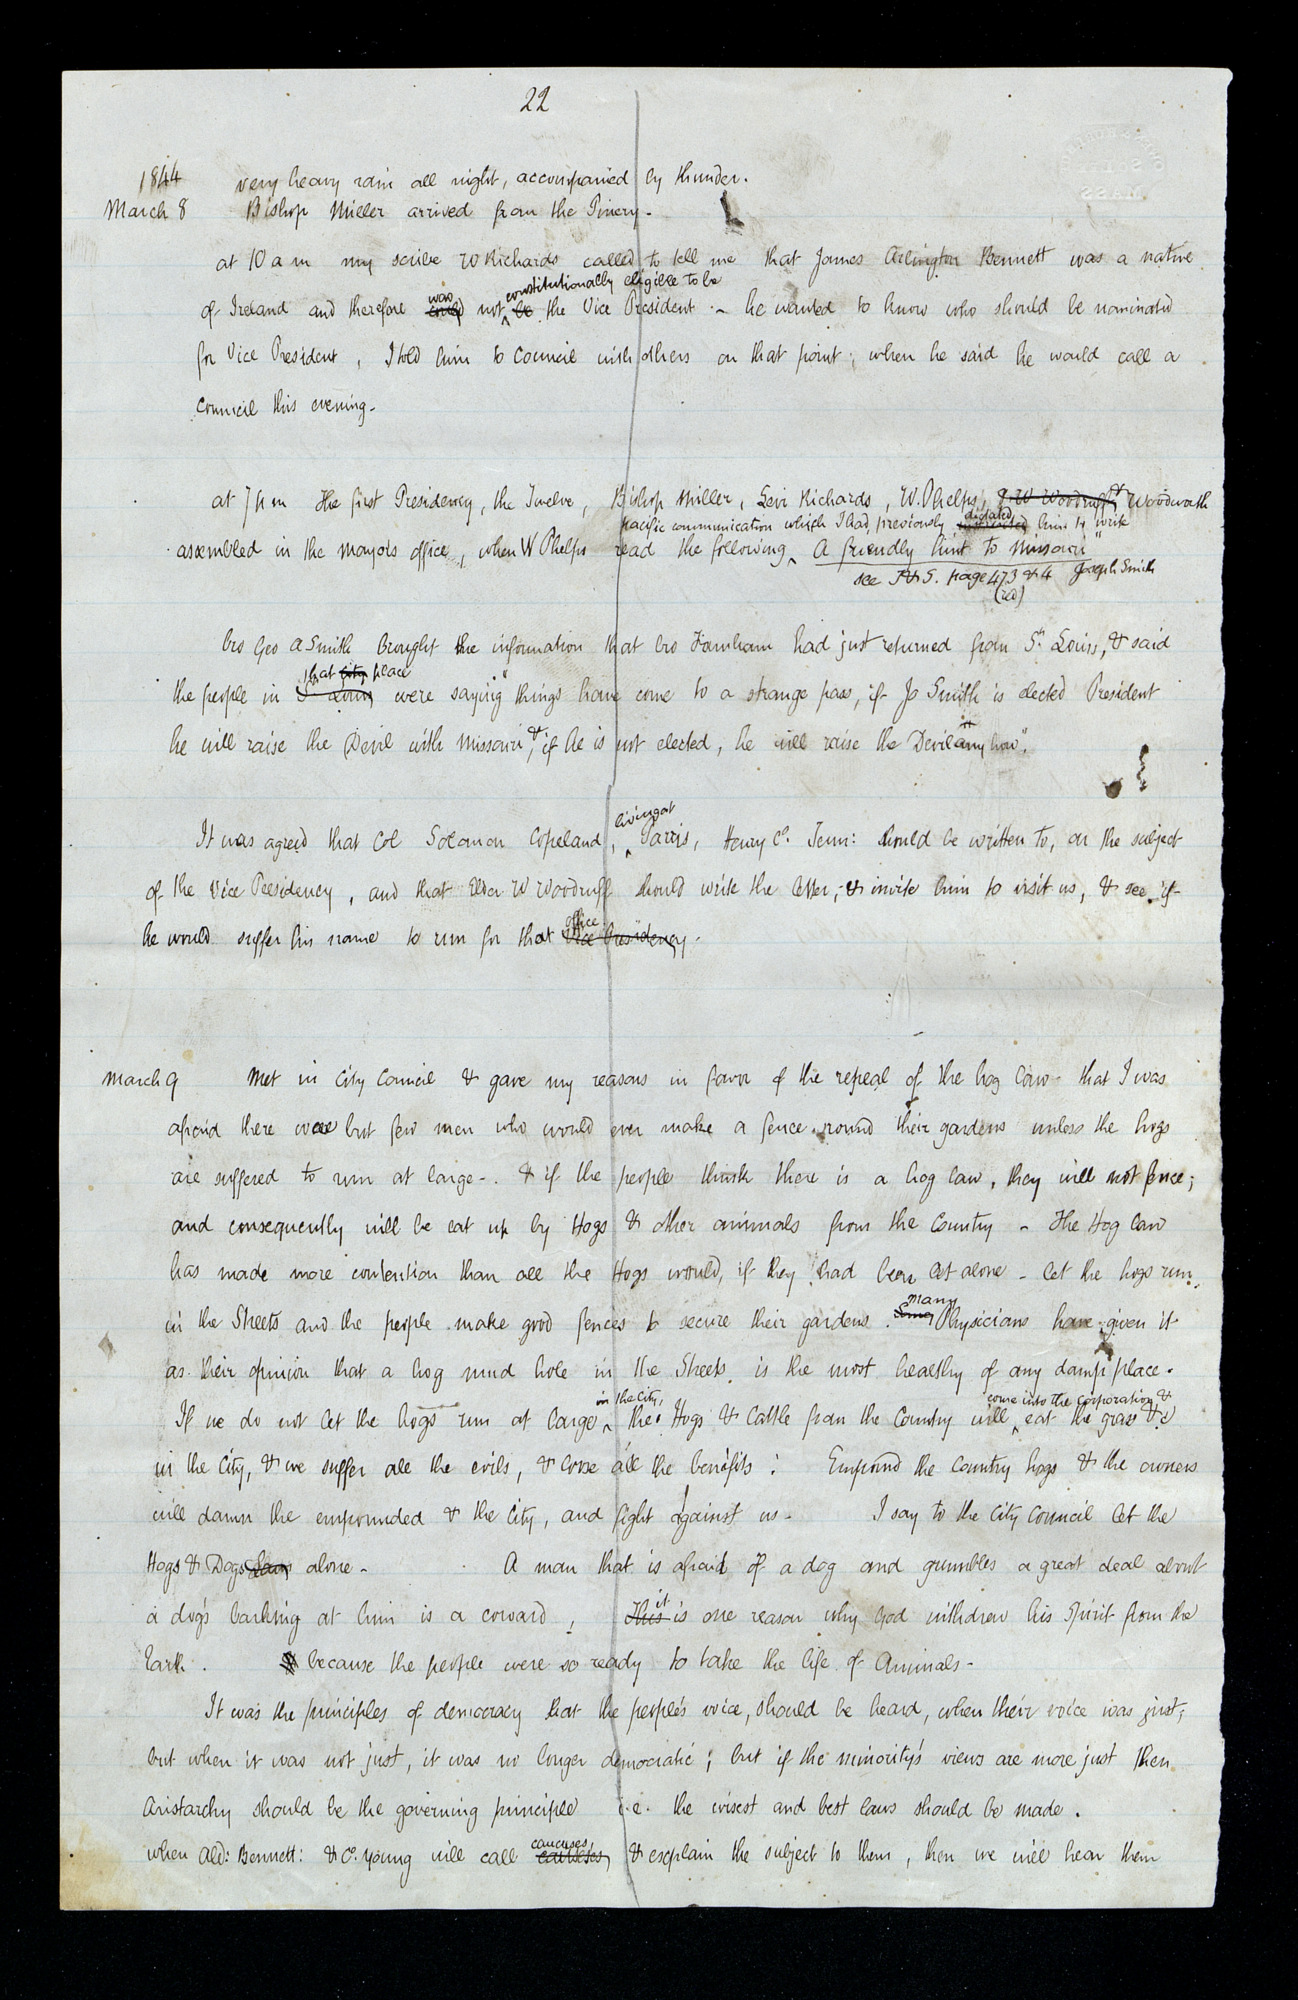 22
1844 very heavy rain all night, accompanied by thunder.
March 8 Bishop Miller arrived from the Pinery.
at 10 a m my scribe W Richards called to tell me that James Arlington Bennett was a native
was constitutionally eligible to be
of Ireland and therefore could not be the Vice President - he wanted to know who should be nominated
for Vice President, I told him to council with others on that point; when he said he would call a
council this evening.
at 7 p m the first Presidency, the Twelve, Bishop Miller, Levi Richards, W. Phelps, & W Woodruff & Woodworth
pacific communication which I had previously dictated him to write
assembled in the mayors office, when W Phelps read the following A friendly hint to Missouri"
see T&S. page 473 & 4 Joseph Smith
(red)
bro Geo A Smith brought the information that bro Farnham had just returned from St. Louis, & said
that city place
the people in St Louis were saying "things have come to a strange pass, if Jo Smith is elected President
he will raise the Devil with Missouri, & if he is not elected, he will raise the Devil any how".
living at
It was agreed that Col Solomon Copeland, Parris, Henry Co. Tenn: should be written to, on the subject
of the Vice Presidency, and that Elder W Woodruff should write the letter, & invite him to visit us, & see if
office.
he would suffer his name to run for that Vice Presidency.
March 9 Met in City Council & gave my reasons in favor of the repeal of the hog law - that I was
afraid there were but few men who would ever make a fence round their gardens unless the hogs
are suffered to run at large -. & if the people think there is a hog law, they will not fence;
and consequently will be eat up by Hogs & other animals from the Country - The Hog law
has made more contention than all the Hogs would, if they had been let alone - let the hogs run
many
in the Streets and the people make good fences to secure their gardens. Some Physicians have given it
as their opinion that a hog mud hole in the Streets is the most healthy of any damp place.
in the City, come into the corporation &
If we do not let the hogs run at large the Hogs & Cattle from the Country will eat the grass &c
in the City, & we suffer all the evils, & lose all the benefits: Empound the Country hogs & the owners
will damn the empounded & the City, and fight against us - I say to the City Council let the
Hogs & Dogs Law alone - A man that is afraid of a dog and grumbles a great deal about
it
a dog's barking at him is a coward, This is one reason why God withdrew his Spirit from the
Earth. because the people were so ready to take the life of Animals -
It was the principles of democracy that the people's voice, should be heard, when their voice was just;
but when it was not just, it was no longer democratic; but if the minority's views are more just then
Aristarchy should be the governing principle i.e. the wisest and best laws should be made.
caucuses,
when Ald: Bennett: & Co. Young will call caucuses, & explain the subject to them, then we will hear them